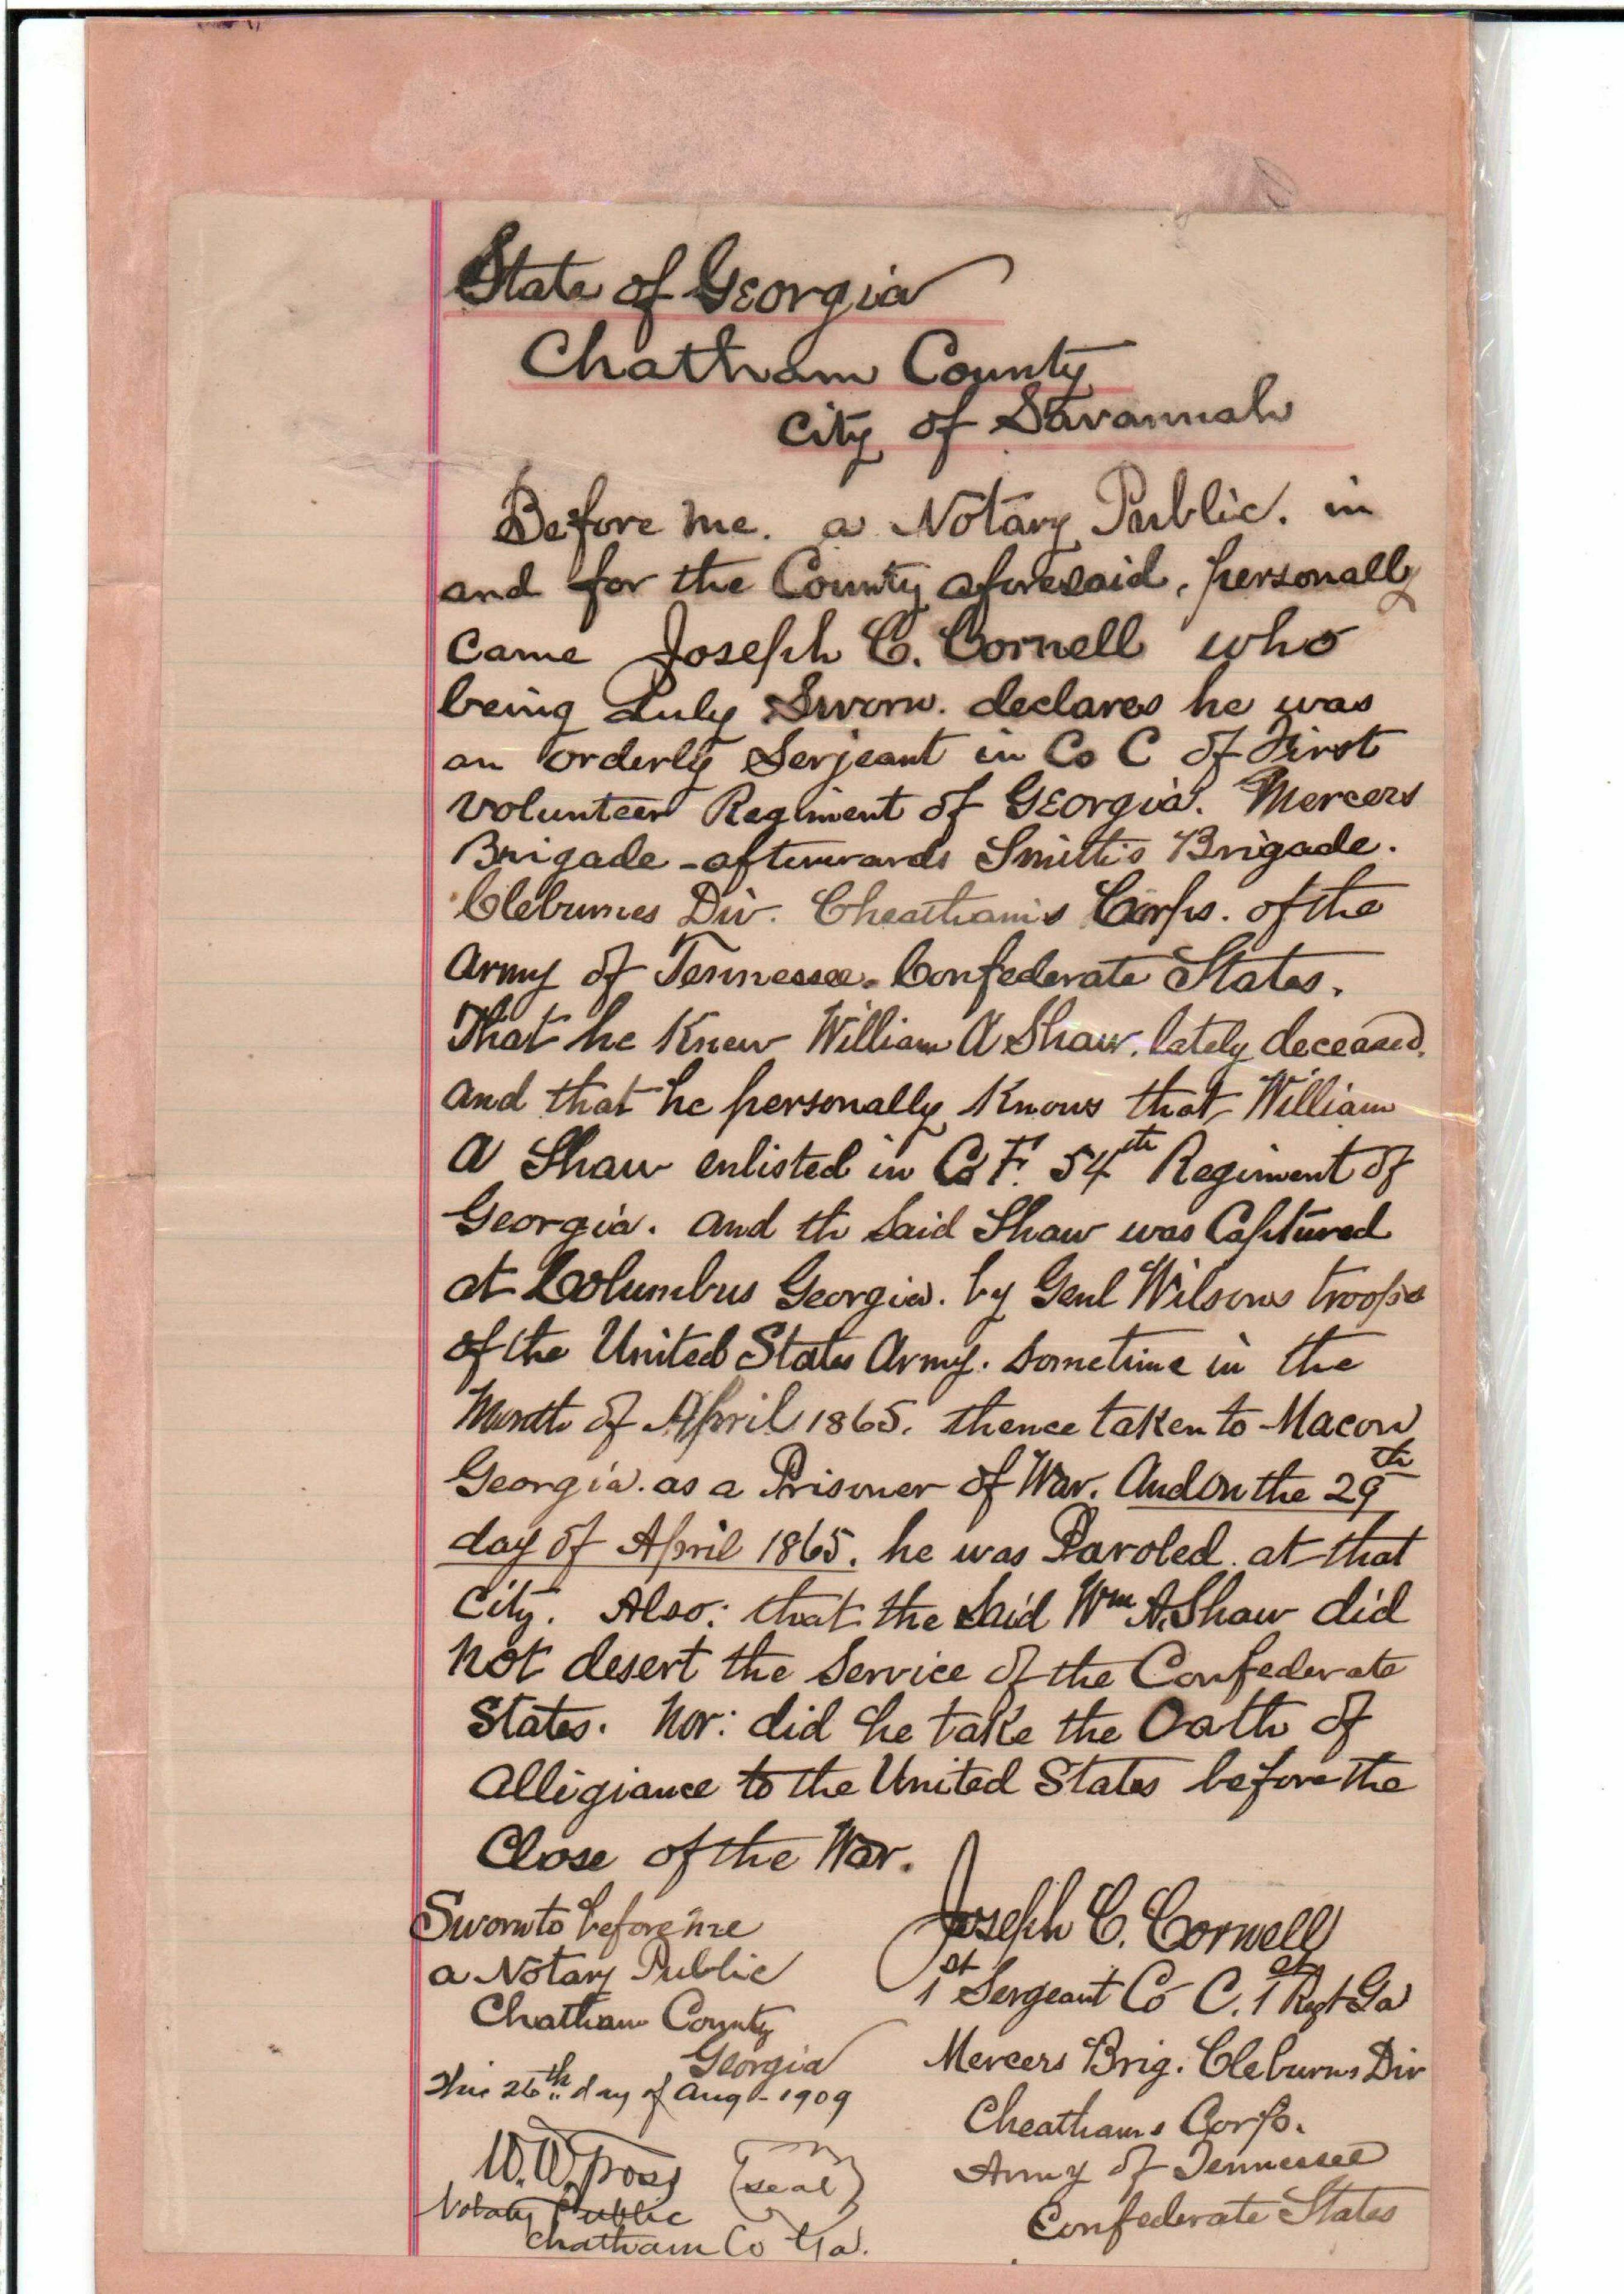 State of Georgia
Chatham County
City of Savannah
Before me. a Notary Public. in
and for the County aforesaid, personally
came Joseph C. Cornell who
being Duly Sworn. declares he was
an orderly Serjeant in Co C of First
Volunteer Regiment of Georgia. Mercers
Brigade - afterwards Smith's Brigade.
Cleburnes Div. Cheatham's Corps. of the
Army of Tennessee. Confederate States.
That he Knew William A Shaw. lately deceased.
and that he personally Knows that William
A Shaw enlisted in Co F. 54th Regiment of
Georgia. and th Said Shaw was Captured
at Columbus Georgia. by Genl Wilsons troops
of the United States Army. Sometime in the
Month of April 1865. thence taken to Macon
Georgia. as a Prisoner of War. And on the 29th
day of April 1865. he was Paroled. at that
City. Also: that the Said Wm A. Shaw did
not desert the Service of the Confederate
States. Nor: did he take the Oath of
Allegiance to the United States before the
Close of the War.
Sworn to before me
a Notary Public
Chatham County
Georgia
This 26th day of Aug - 1909
W. W.
Notary Public
Chatham Co Ga.
(seal)
Joseph C. Cornell
1st Sergeant Co C. 1st Regt Ga
Mercers Brig. Cleburns Div
Cheathams Corps.
Army of Tennessee
Confederate States